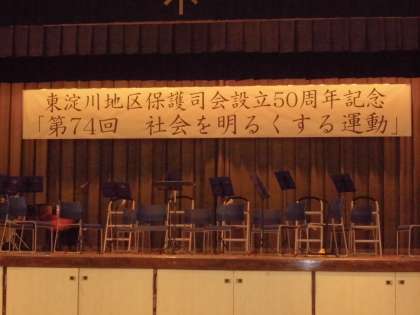 東淀川地区保護司会設立50周年記念
「第74回　社会を明るくする運動」